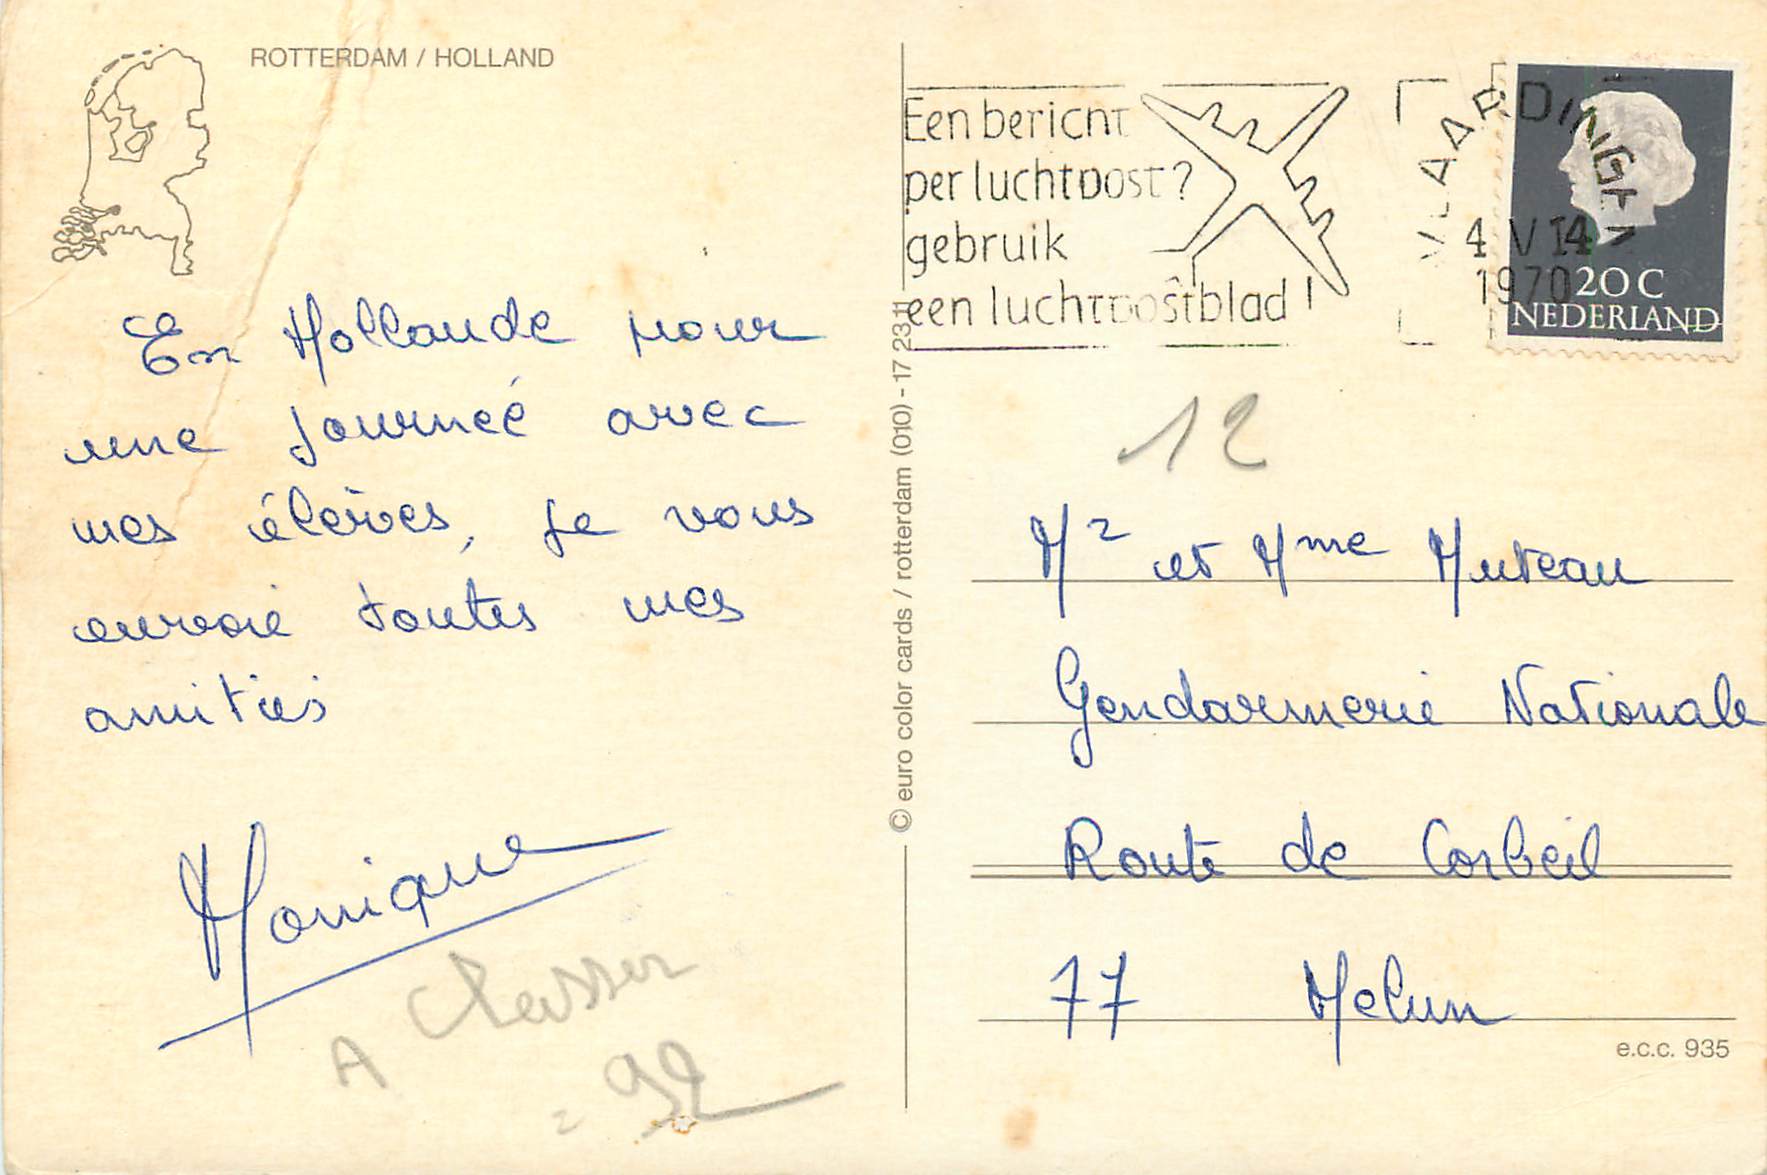 ROTTERDAM / HOLLAND
En Hollande pour
une journée avec
mes élèves, je vous
envoie toutes mes
amitiés
Monique
A classer
92
© euro color cards / rotterdam (010) - 17 23 11
Een bericht
per luchtpost?
gebruik
een luchtpostblad!
VLAARDINGEN
4 V 14
1970
20 C
NEDERLAND
12
Mr et Mme Muteau
Gendarmerie Nationale
Route de Corbeil
77 Melun
e.c.c. 935